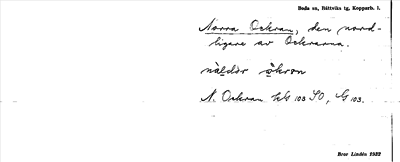 Boda sn, Rättviks tg, Kopparb. l.
Norra Ockran, den nord-
ligare av Ockrarna.
näldär åkron
N. Ockran hbl 103 SO, G 103.
Bror Lindén 1932